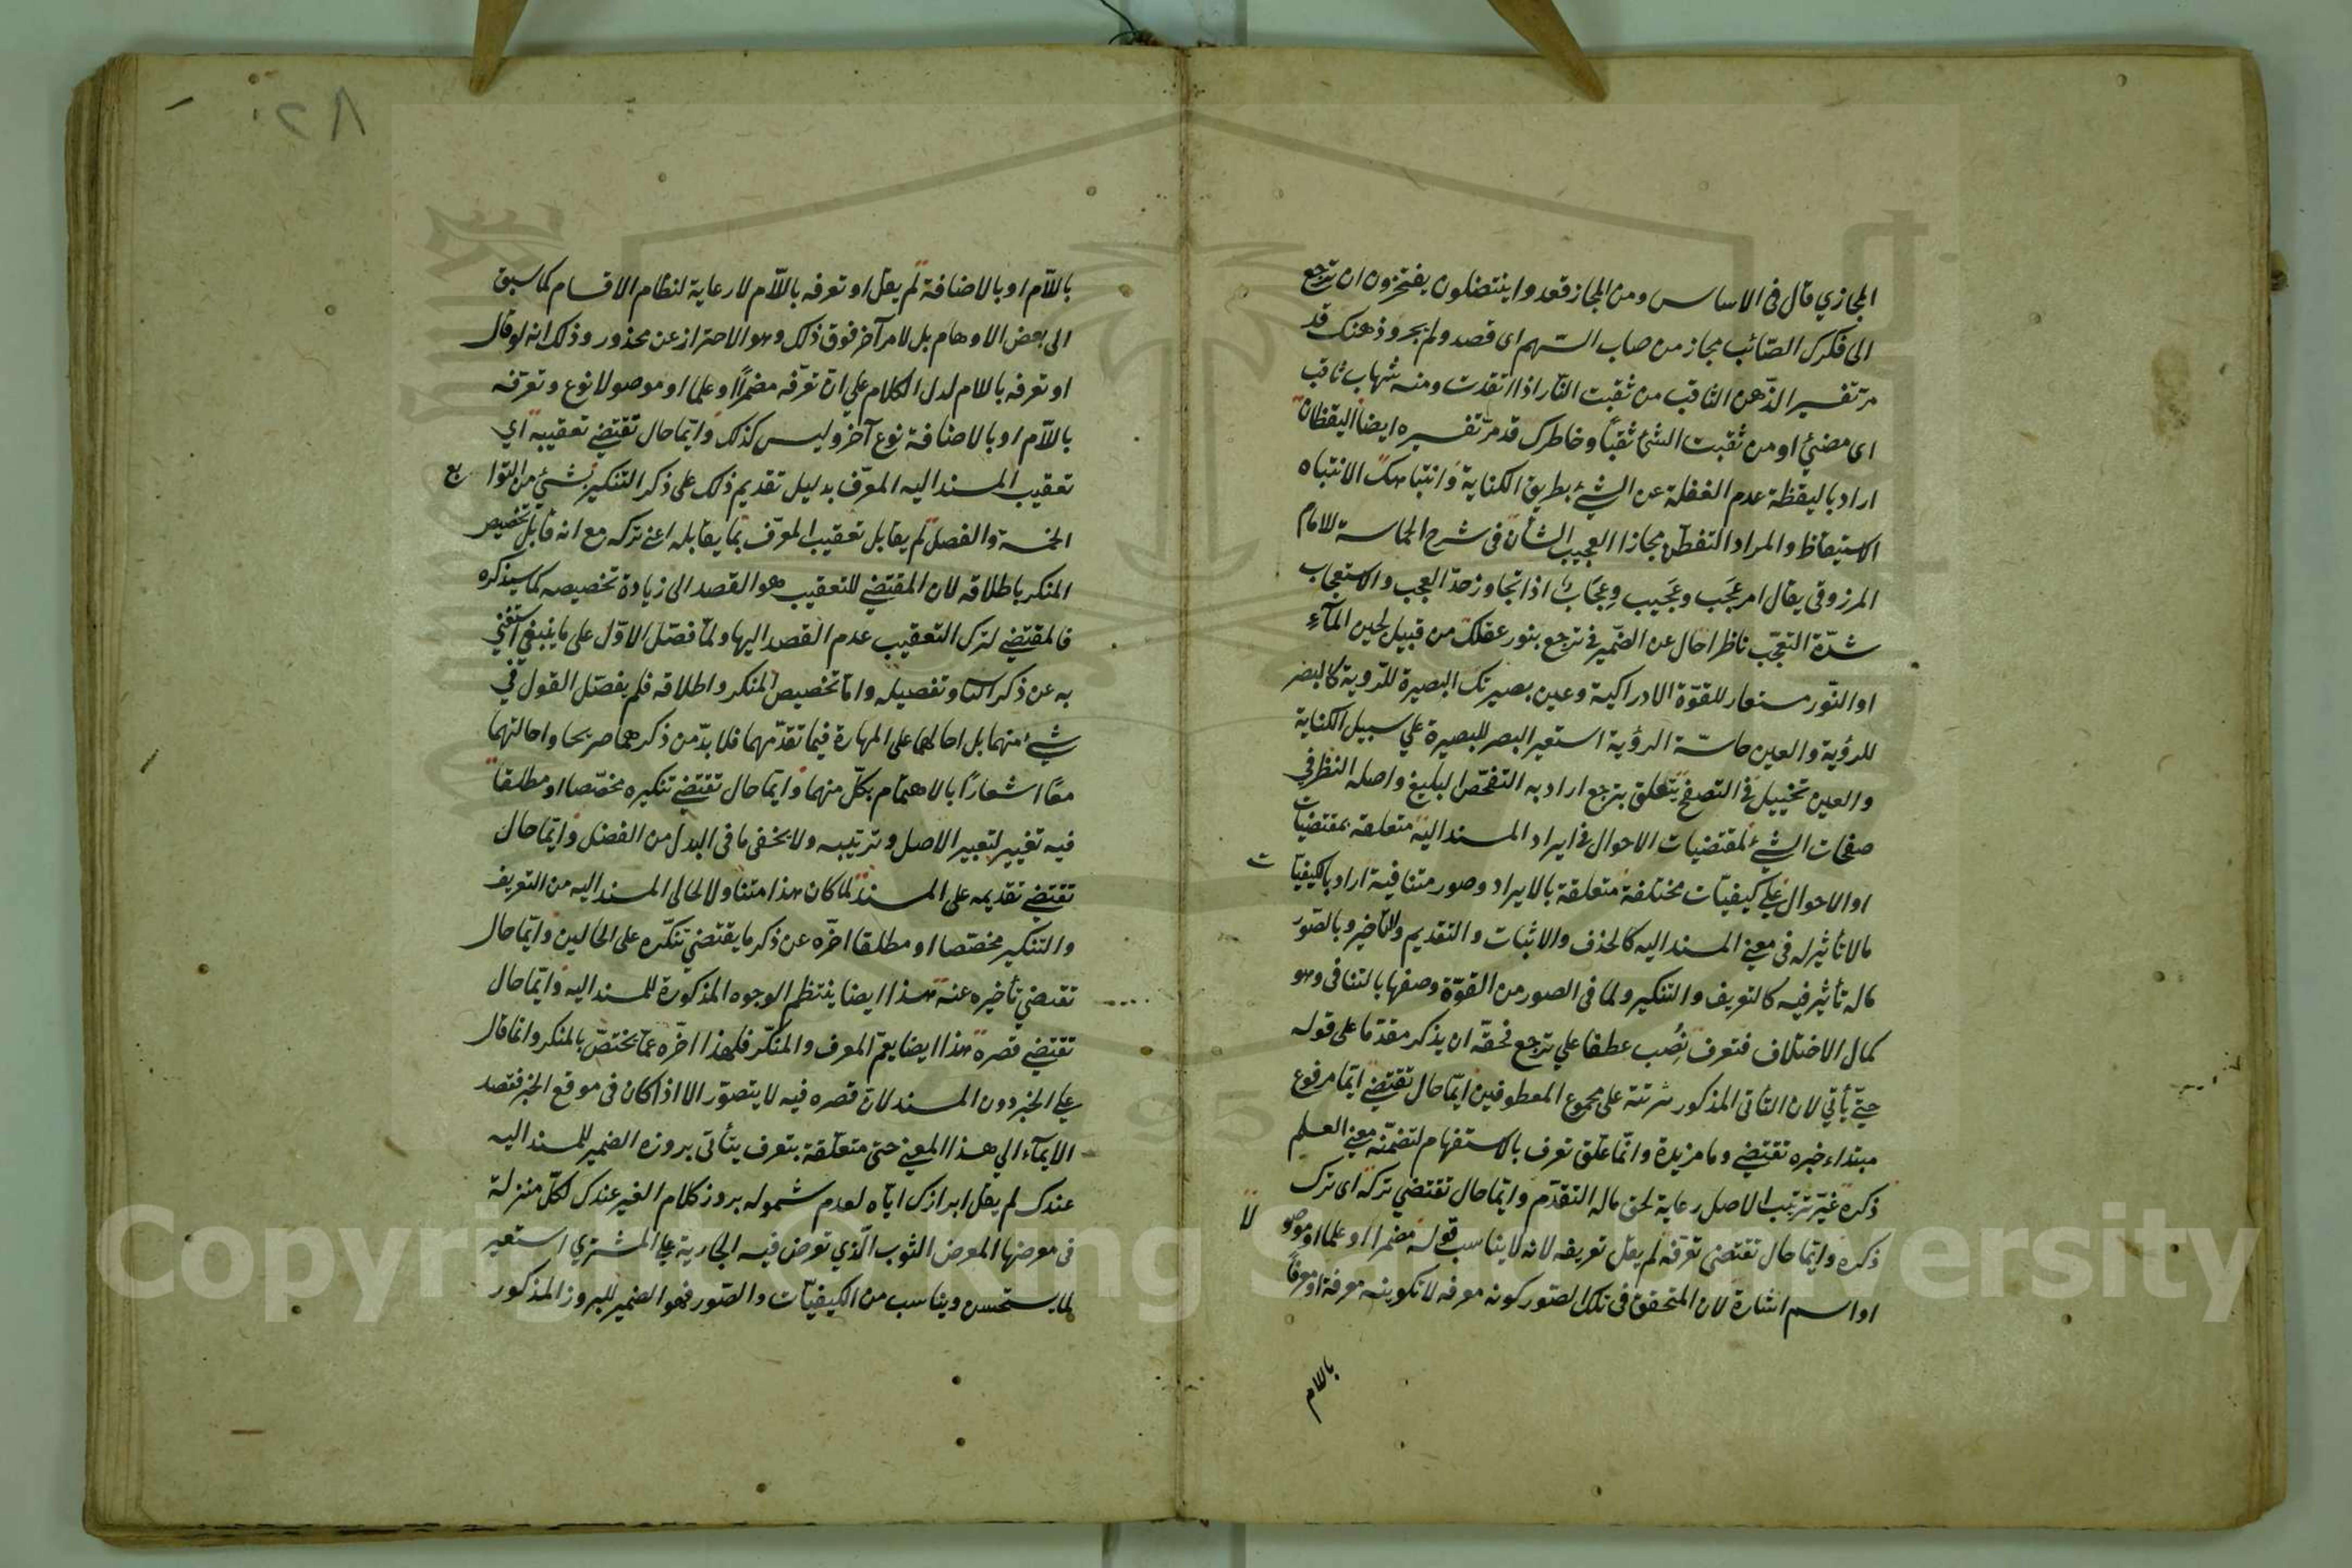 المجازي قال فى الاساس ومن المجاز قعدوا ينتضلون يفتخرون ان ترجع
الى فكرك الصّائب مجاز من صاب السّهم اى قصد ولم يجر وذهنك قد
مر تفسير الذّهن الثاقب من ثقبت النّار اذا اتقدت ومنه شهاب ثاقب
اى مضئ او من ثقبت الشئ ثقبًا وخاطرك قد مرّ تفسيره ايضا اليقظان
اراد باليقظة عدم الغفلة عن الشئ بطريق الكناية وانتباهك الانتباه
الاستيقاظ والمراد التفطّن مجازا العجيب الشأن فى شرح الحماسة للامام
المرزوقى يقال امر عَجَب وعَجيب وعجّاب اذا تجاوز حدّ العجب والاستعجاب
شدّة التعجّب ناظرا حال عن الضّمير فى ترجع بنور عقلك من قبيل لجين المآء
او النّور مستعار للقوّة الادراكية وعين بصيرتك البصيرة للرّوية كالبصر
للرؤية والعين حاسّة الرؤية استعير البصر للبصيرة على سبيل الكناية
والعين تخييل فى التصفح يتعلق بترجع اراد به التفحّص البليغ واصله النظر فى
صفحات الشئ لمقتضيات الاحوال فى ايراد المسند اليه متعلقة بمقتضيات
او الاحوال على كيفيّات مختلفة متعلقة بالايراد وصور متنافية اراد بالكيفيّات
مالا تأثير له فى معنى المسند اليه كالحذف والاثبات والتقديم والتأخير وبالصّور
ماله تأثير فيه كالتعريف والتنكير ولما فى الصور من القوّة وصفها بالتنافى وهو
كمال الاختلاف فتعرف نُصِب عطفا على ترجع فحقّه ان يذكر مقدّما على قوله
حتّى يأتي لان التأتى المذكور مرتّبة على مجموع المعطوفين ايّما حال تقتضى ايّما مرفوع
مبتداء خبره تقتضى وما مزيدة وانّما علّق تعرف بالاستفهام لتضمّنه معنى العلم
ذكره غيّر ترتيب الاصل رعاية لحق ماله التقدّم وايّما حال تقتضى تركه اى ترك
ذكره وايّما حال تقتضى تعرّفه لم يقل تعريفه لانه لا يناسب قوله مضمرا او علما او موصولا
او اسم اشارة لان المتحقق فى تلك الصّور كونه معرفة لا تكوينه معرفة او معرّفا
باللام
٨٢
باللّام او بالاضافة لم يقل او تعرفه باللّام لا رعاية لنظام الاقسام كما سبق
الى بعض الاوهام بل لامر آخر فوق ذلك وهو الاحتراز عن محذور وذلك انه لو قال
او تعرفه باللام لدل الكلام على انّ تعرّفه مضمرًا او علما او موصولا نوع وتعرّفه
باللّام او بالاضافة نوع آخر وليس كذلك وايّما حال تقتضى تعقيبه اي
تعقيب المسند اليه المعرّف بدليل تقديم ذلك على ذكر التنكير بشئ من التوابع
الخمسة والفصل لم يقابل تعقيب المعرّف بما يقابله اعنى تركه مع انه قابل تخصيص
المنكر باطلاقه لان المقتضى للتعقيب هو القصد الى زيادة تخصيصه كما سيذكره
فالمقتضى لترك التعقيب عدم القصد اليها ولمّا فصّل الاوّل على ما ينبغى استغنى
به عن ذكر الثا وتفصيله وامّا تخصيص المنكر واطلاقه فلم يفصّل القول فى
شئ منهما بل احالهما على المهارة فيما تقدّمهما فلا بدّ من ذكرهما صريحا واحالتهما
معًا اشعارًا بالاهتمام بكلّ منهما وايّما حال تقتضى تنكيره مخصّصا او مطلقا
فيه تغيير لتعبير الاصل وترتيبه ولا يخفى ما فى البدل من الفضل وايّما حال
تقتضى تقديمه على المسند لما كان هذا متناولا لحالى المسند اليه من التعريف
والتنكير مخصّصا او مطلقا اخّره عن ذكر ما يقتضى تنكّره على الحالين وايّما حال
تقتضى تأخيره عنه هذا ايضا ينتظم الوجوه المذكورة للمسند اليه وايّما حال
تقتضى قصره هذا ايضا يعمّ المعرف والمنكّر فلهذا اخّره عمّا يختصّ بالمنكر وانما قال
على الخبر دون المسند لانّ قصره فيه لا يتصوّر الا اذا كان فى موقع الخبر فقصد
الايمآء الى هذا المعنى حتى متعلّقة بتعرف يتأتى بروزه الضمير للمسند اليه
عندك لم يقل ابرازك ايّاه لعدم شموله بروز كلام الغير عندك لكلّ منزلة
فى معرضها المعرض الثوب الّذي تعرض فيه الجارية على المشتري استعير
لما يستحسن ويناسب من الكيفيّات والصّور فهو الضمير للبروز المذكور
Copyright © King Saud University